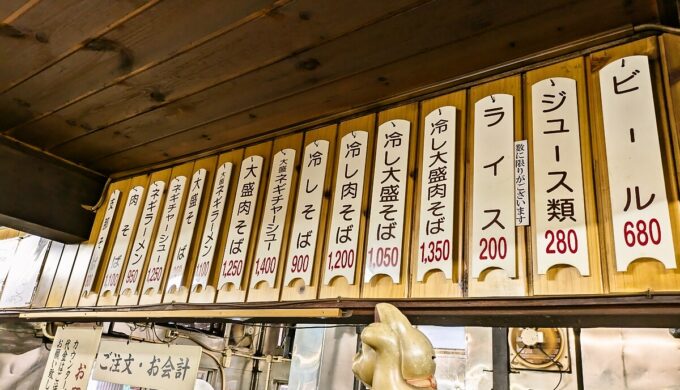 ビール
680
ジュース類
280
ライス
200
数に限りがございます
冷し大盛肉そば
1,350
冷し大盛そば
1,050
冷し肉そば
1,200
冷しそば
900
大盛ネギチャーシュー
1,400
大盛肉そば
1,250
大盛ネギラーメン
1,100
大盛そ
ネギチャーシュー
1,250
ネギラーメン
950
肉そば
ご注文・お会計
カウンター
代金は
お願い